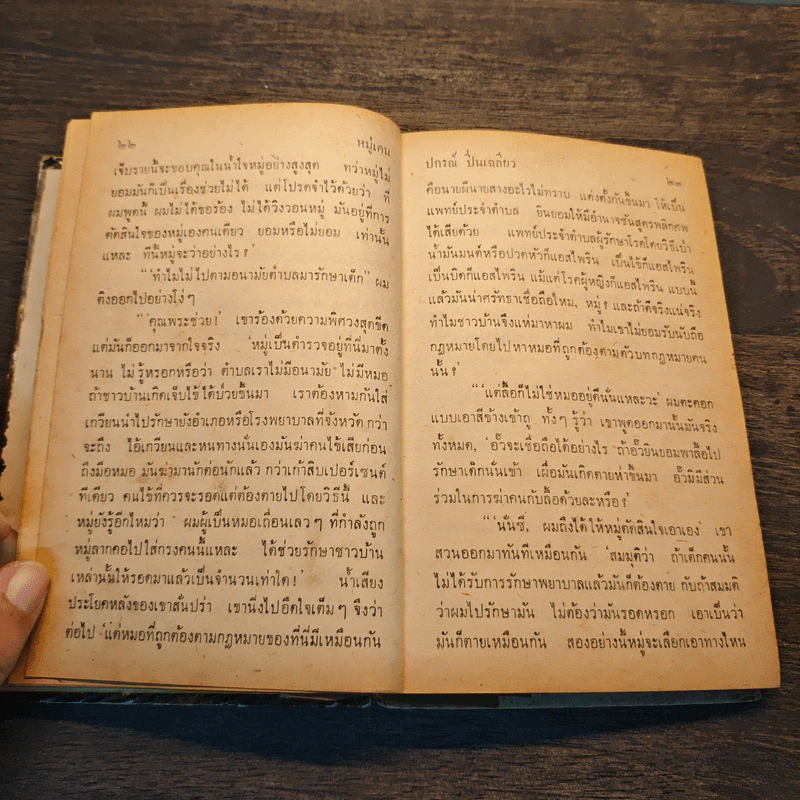 ๒๒ หมู่เดน
เจ็บรายนี้จะขอบคุณในน้ำใจหมู่อย่างสูงสุด ทว่าหมู่ไม่
ยอมมันก็เป็นเรื่องช่วยไม่ได้ แต่โปรดจำไว้ด้วยว่า ที่
ผมพูดนี้ ผมไม่ได้ขอร้อง ไม่ได้วิงวอนหมู่ มันอยู่ที่การ
ตัดสินใจของหมู่เองคนเดียว ยอมหรือไม่ยอม เท่านั้น
แหละ ทีนี้หมู่จะว่าอย่างไร?'
“‘ทำไมไม่ไปตามอนามัยตำบลมารักษาเด็ก” ผม
ติงออกไปอย่างโง่ๆ
“‘คุณพระช่วย!' เขาร้องด้วยความพิศวงสุดขีด
แต่มันก็ออกมาจากใจจริง ‘หมู่เป็นตำรวจอยู่ที่นี่มาตั้ง
นาน ไม่รู้หรอกหรือว่า ตำบลเราไม่มีอนามัย ไม่มีหมอ
ถ้าชาวบ้านเกิดเจ็บไข้ได้ป่วยขึ้นมา เราต้องหามกันใส่
เกวียนนำไปรักษายังอำเภอหรือโรงพยาบาลที่จังหวัด กว่า
จะถึง ไอ้เกวียนและหนทางนั่นเองมันฆ่าคนไข้เสียก่อน
ถึงมือหมอ มันฆ่ามานักต่อนักแล้ว กว่าเก้าสิบเปอร์เซนต์
ทีเดียว คนไข้ที่ควรจะรอดแต่ต้องตายไปโดยวิธีนี้ และ
หมู่ยังรู้อีกไหมว่า ผมผู้เป็นหมอเถื่อนเลวๆ ที่กำลังถูก
หมู่ลากคอไปใส่กรงคนนี้แหละ ได้ช่วยรักษาชาวบ้าน
เหล่านั้นให้รอดมาแล้วเป็นจำนวนเท่าใด!' น้ำเสียง
ประโยคหลังของเขาสั่นปร่า เขานิ่งไปอึดใจเต็มๆ จึงว่า
ต่อไป ‘แต่หมอที่ถูกต้องตามกฎหมายของที่นี่มีเหมือนกัน
ปกรณ์ ปิ่นเฉลียว ๒๓
คือนายผีนายสางอะไรไม่ทราบ แต่งตั้งกันขึ้นมา ให้เป็น
แพทย์ประจำตำบล ยินยอมให้มีอำนาจชันสูตรพลิกศพ
ได้เสียด้วย แพทย์ประจำตำบลผู้รักษาโรคโดยวิธีเป่า
น้ำมันมนต์หรือปวดหัวก็แอสไพริน เป็นไข้ก็แอสไพริน
เป็นบิดก็แอสไพริน แม้แต่โรคผู้หญิงก็แอสไพริน แบบนี้
แล้วมันน่าศรัทธาเชื่อถือไหม, หมู่? และถ้าดีจริงแน่จริง
ทำไมชาวบ้านจึงแห่มาหาผม ทำไมเขาไม่ยอมรับนับถือ
กฎหมายโดยไปหาหมอที่ถูกต้องตามตัวบทกฎหมายคน
นั้น?'
“‘แต่ลื้อก็ไม่ใช่หมออยู่ดีนั่นแหละวะ' ผมตะคอก
แบบเอาสีข้างเข้าถู ทั้งๆ รู้ว่า เขาพูดออกมานั้นมันจริง
ทั้งหมด, ‘อั๊วจะเชื่อถือได้อย่างไร ถ้าอั๊วยินยอมพาลื้อไป
รักษาเด็กนั่นเข้า เผื่อมันเกิดตายห่าขึ้นมา อั๊วมิมีส่วน
ร่วมในการฆ่าคนกับลื้อด้วยละหรือ?'
“‘นั่นซี, ผมถึงได้ให้หมู่ตัดสินใจเอาเอง' เขา
สวนออกมาทันทีเหมือนกัน ‘สมมุติว่า ถ้าเด็กคนนั้น
ไม่ได้รับการรักษาพยาบาลแล้วมันก็ต้องตาย กับถ้าสมมติ
ว่าผมไปรักษามัน ไม่ต้องว่ามันรอดหรอก เอาเป็นว่า
มันก็ตายเหมือนกัน สองอย่างนี้หมู่จะเลือกเอาทางไหน